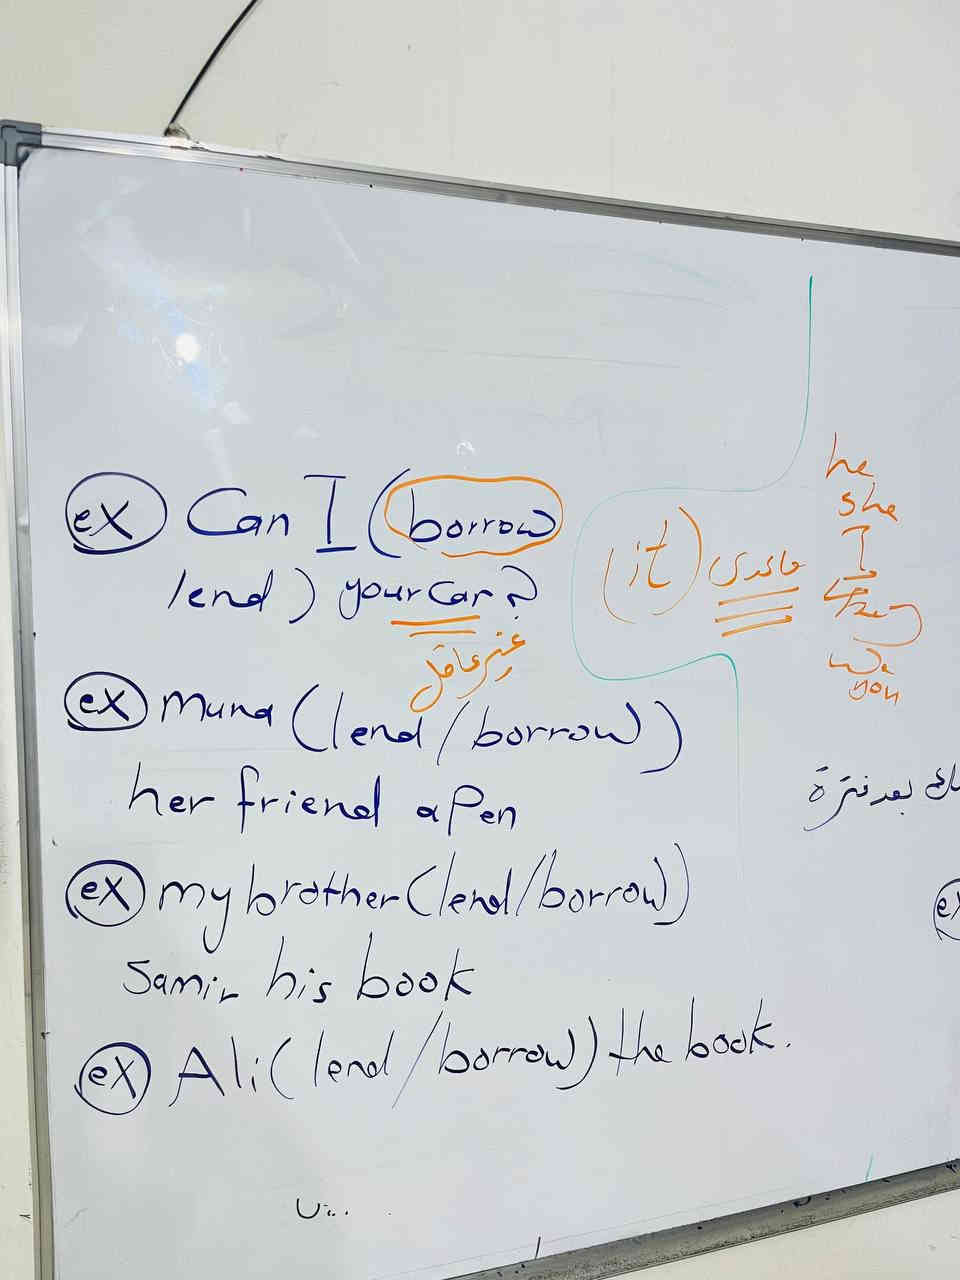 ex Can I (borrow
lend) your car?
غير عاقل
ex muna (lend/borrow)
her friend a Pen
ex my brother (lend/borrow)
Samir his book
ex Ali (lend/borrow) the book.
(it) ماعدى
he
she
I
they
we
you
بعد فترة
ex